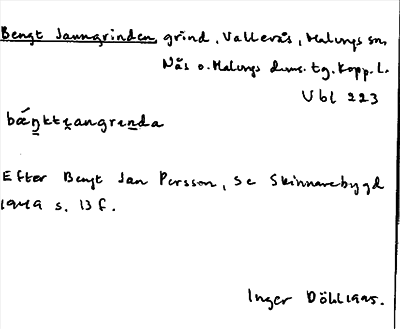 Bengt Janngrinden, grind, Vallerås, Malungs sn,
Nås o. Malungs doms. tg. Kopp. l.
Vbl 223
Efter Bengt Jan Persson, se Skinnarebygd
1949 s. 13 f.
Inger Döhl 1995.